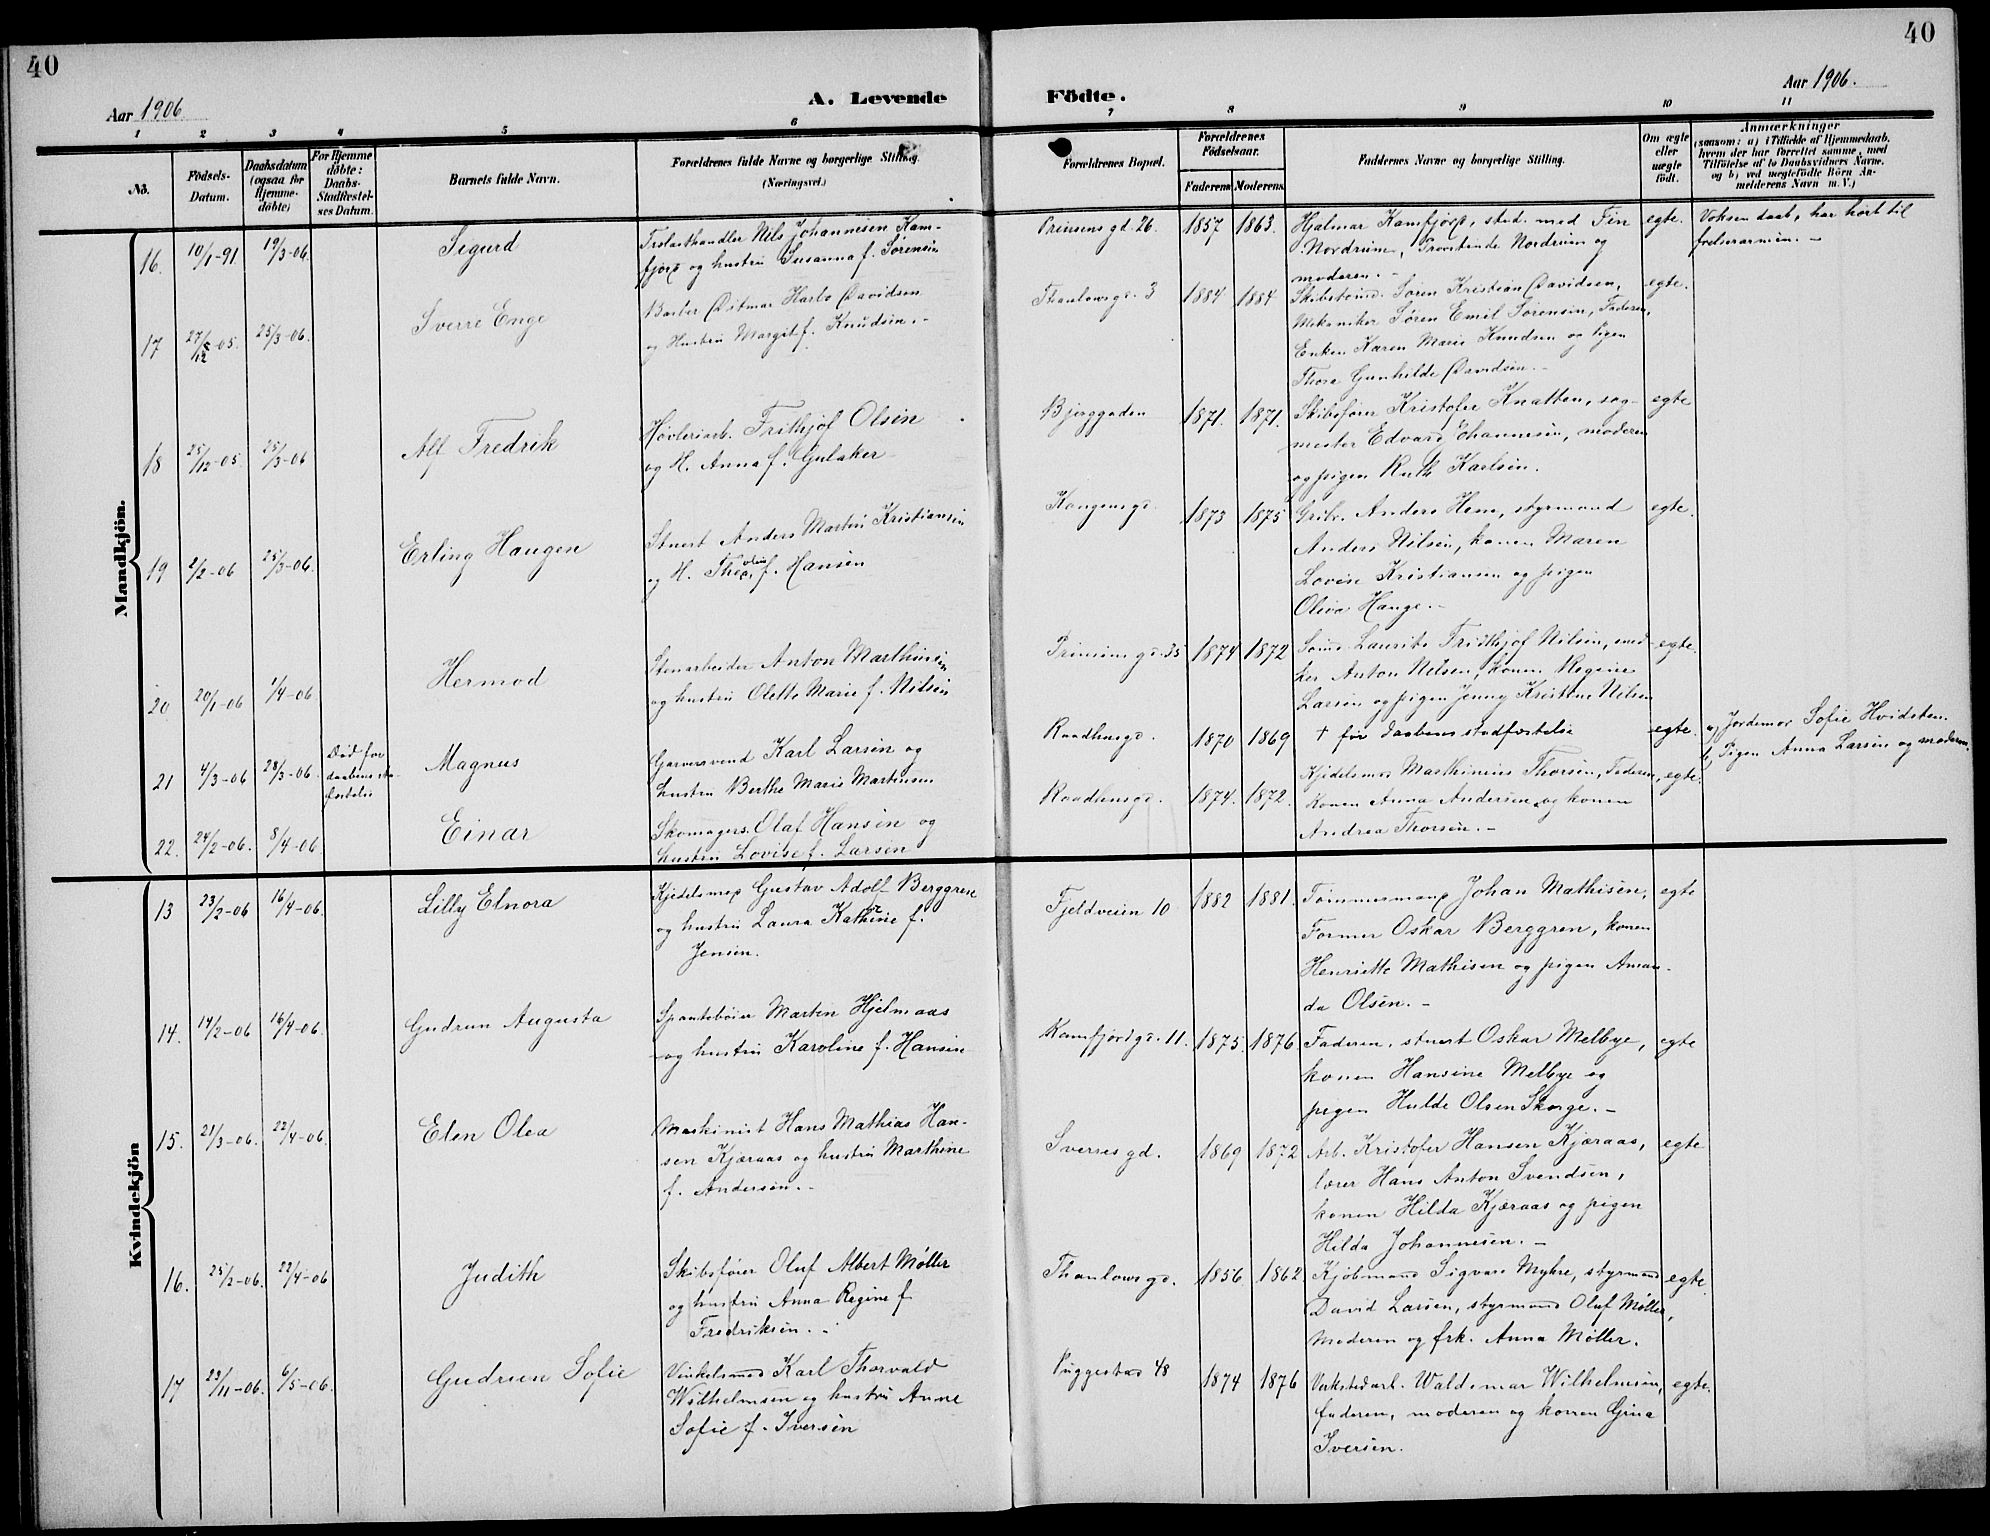 40
40
Aar 1906.
A. Levende Födte.
Aar 1906.
1 2 3 4 5 6 7 8 9 10 11
No.
Födsels-Datum.
Daabsdatum (ogsaa for Hjemmedöbte)
For Hjemmedöbte: Daabs-Stadfæstelses Datum.
Barnets fulde Navn.
Forældrenes fulde Navne og borgerlige Stilling. (Næringsvei.)
Forældrenes Bopæl.
Forældrenes Födselsaar.
Faderens Moderens
Faddernes Navne og borgerlige Stilling.
Om ægte eller uægte födt.
Anmærkninger
(saasom: a) i Tilfælde af Hjemmedaab, hvem der har forrettet samme, med Tilföielse af to Daabsvidners Navne. og b) ved uægtefödte Börn Anmelderens Navn m. V.)
Mandkjön.
16. 10/1-91 19/3-06. Sigurd
Trælasthandler Nils Johannesen Kam-
fjord og hustru Susanna f. Sørensen
Prinsens gd. 26. 1857 1863.
Hjalmar Kamfjord, stud. med Fin
Nordrum, Frøkinde Nordrum og
moderen.-
egte.
Voksen daab, har hørt til
frelserarmen.-
17 27/12-05. 25/3-06. Sverre Enge
Barber Ditmar Harbo Davidsen
og Hustru Margit f. Knudsen.-
Thaulowsgd. 3 1884 1884
Skibstømd. Søren Kristian Davidsen,
Mekaniker Søren Emil Sørensen, Faderen,
Enken Karen Marie Knudsen og Pigen
Thora Gunhilde Davidsen.-
egte.
18 25/12-05. 25/3-06 Alf Fredrik
Høvleriarb. Frithjof Olsen
og H. Anna f. Gulaker
Bjerggaden 1871. 1871.
Skibsfører Kristofer Knatten, sag-
mester Edvard Johannesen, moderen
og pigen Ruth Karlsen.
egte
19 2/2-06 25/3-06. Erling Haugen
Stuert Anders Martin Kristiansen
og H. Theoline f. Hansen
Kongensgd. 1873 1875
Gribr. Anders Hem, styrmand
Anders Nilsen, konen Maren
Lovise Kristiansen og pigen
Oliva Hauge.-
egte.
20 20/1-06 1/4-06 Hermod
Stenarbeider Anton Marthinsen
og hustru Olette Marie f. Nilsen
Prinsens gd. 35 1874 1872
Sømd. Laurits Fridthjof Nilsen, sned-
ker Anton Nilsen, konen Regine
Larsen og pigen Jenny Kristine Nilsen
egte.
21 4/3-06 28/3-06. Død før daabens stadfæstelse Magnus
Garversvend Karl Larsen og
hustru Berthe Marie Martensen
Raadhusgd. 1870 1869
† før daabens stadfæstelse
egte.
a, Jordemor Sofie Hvidsten.
b, Pigen Anna Larsen og moderen.
22. 24/2-06. 8/4-06. Einar
Skomagers. Olaf Hansen og
hustru Lovise f. Larsen
Raadhusgd. 1874. 1872.
Kjedelsmed Marthinius Thorsen, Faderen,
Konen Anna Andersen og konen
Andrea Thorsen.-
egte.
Kvindekjön
13 23/2-06 16/4-06. Lilly Elnora
Kjedelsmed Gustav Adolf Berggren
og hustru Laura Kathrine f.
Jensen.
Fjeldveien 10 1882 1881.
Tømmermand Johan Mathisen,
Former Oskar Berggren, konen
Henriette Mathisen og pigen Aman-
da Olsen.-
egte
14. 14/2-06 16/4-06. Gudrun Augusta
Martin Hjelmaas
og hustru Karoline f. Hansen
Kamfjordgd. 11. 1875. 1876
Faderen, stuert Oskar Melbye,
konen Hansine Melbye og
pigen Hulde Olsen Skorge.-
egte
15. 21/3-06. 22/4-06. Elen Olea
Maskinist Hans Mathias Han-
sen Kjæraas og hustru Marthine
f. Andersen.-
Sverresgd. 1869 1872
Arb. Kristofer Hansen Kjæraas,
lærer Hans Anton Svendsen,
konen Hilda Kjæraas og pigen
Hilda Johannesen.-
egte
16. 25/2-06. 22/4-06 Judith
Skibsfører Oluf Albert Møller
og hustru Anna Regine f
Fredriksen.-
Thaulowsgd. 1856. 1862
Kjøbmand Sigvard Myhre, styrmand
David Larsen, styrmand Oluf Møller,
Moderen og frk. Anna Møller.
egte
17 23/11-06. 6/5-06. Gudrun Sofie
Vinkelsmed Karl Thorvald
Wilhelmsen og hustru Anne
Sofie f. Iversen
Puggestad 48 1874 1876
Verkstedarb. Waldemar Wilhelmsen,
faderen, moderen og konen Gina
Iversen.
egte.